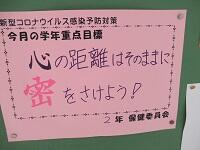 新型コロナウイルス感染予防対策
今月の学年重点目標
心の距離はそのままに
密をさけよう♪
2年 保健委員会